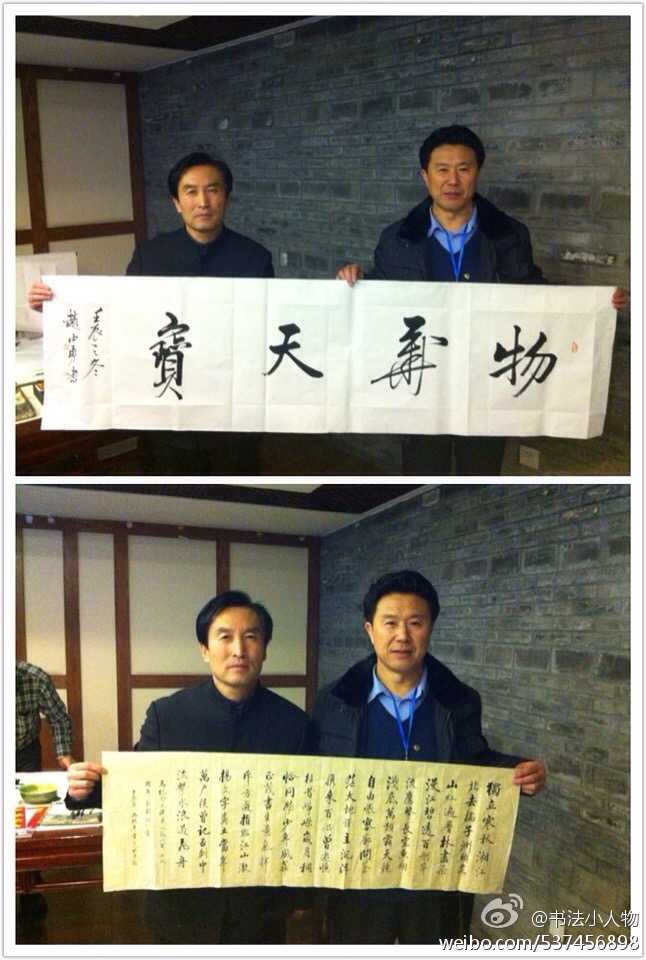 物華天寶
壬辰之冬
獨立寒秋湘江
北去橘子洲頭看萬
山紅遍層林盡染
漫江碧透百舸爭
流鷹擊長空魚翔
淺底萬類霜天競
自由悵寥廓問蒼
茫大地誰主沉浮
攜來百侶曾遊憶
往昔崢嶸歲月稠
恰同學少年風華
正茂書生意氣揮
斥方遒指點江山激
揚文字糞土當年
萬戶侯曾記否到中
流擊水浪遏飛舟
@书法小人物
weibo.com/537456898